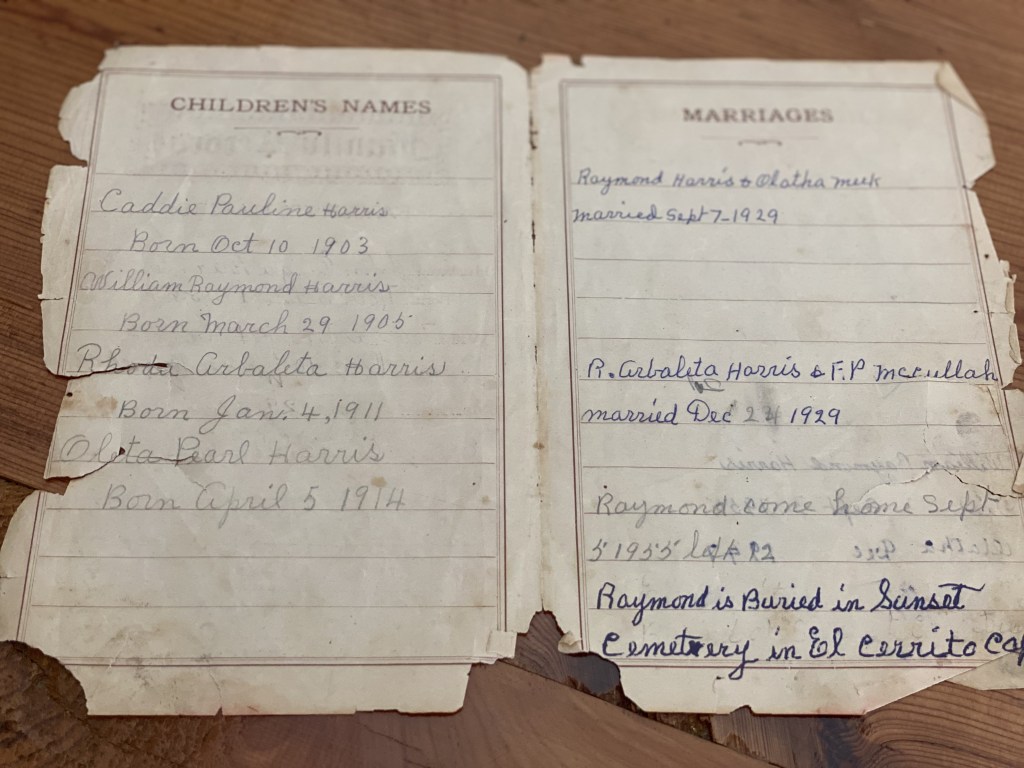 CHILDREN'S NAMES
Caddie Pauline Harris
Born Oct 10 1903
William Raymond Harris
Born March 29 1905
Rhoda Arbaleta Harris
Born Jan. 4, 1911
Oleta Pearl Harris
Born April 5 1914
MARRIAGES
Raymond Harris & Olatha Meek
married Sept 7-1929
R. Arbaleta Harris & F.P McCullah
married Dec 24 1929
Raymond come home Sept
5 1955 left 12
Raymond is Buried in Sunset
Cemetery in El Cerrito